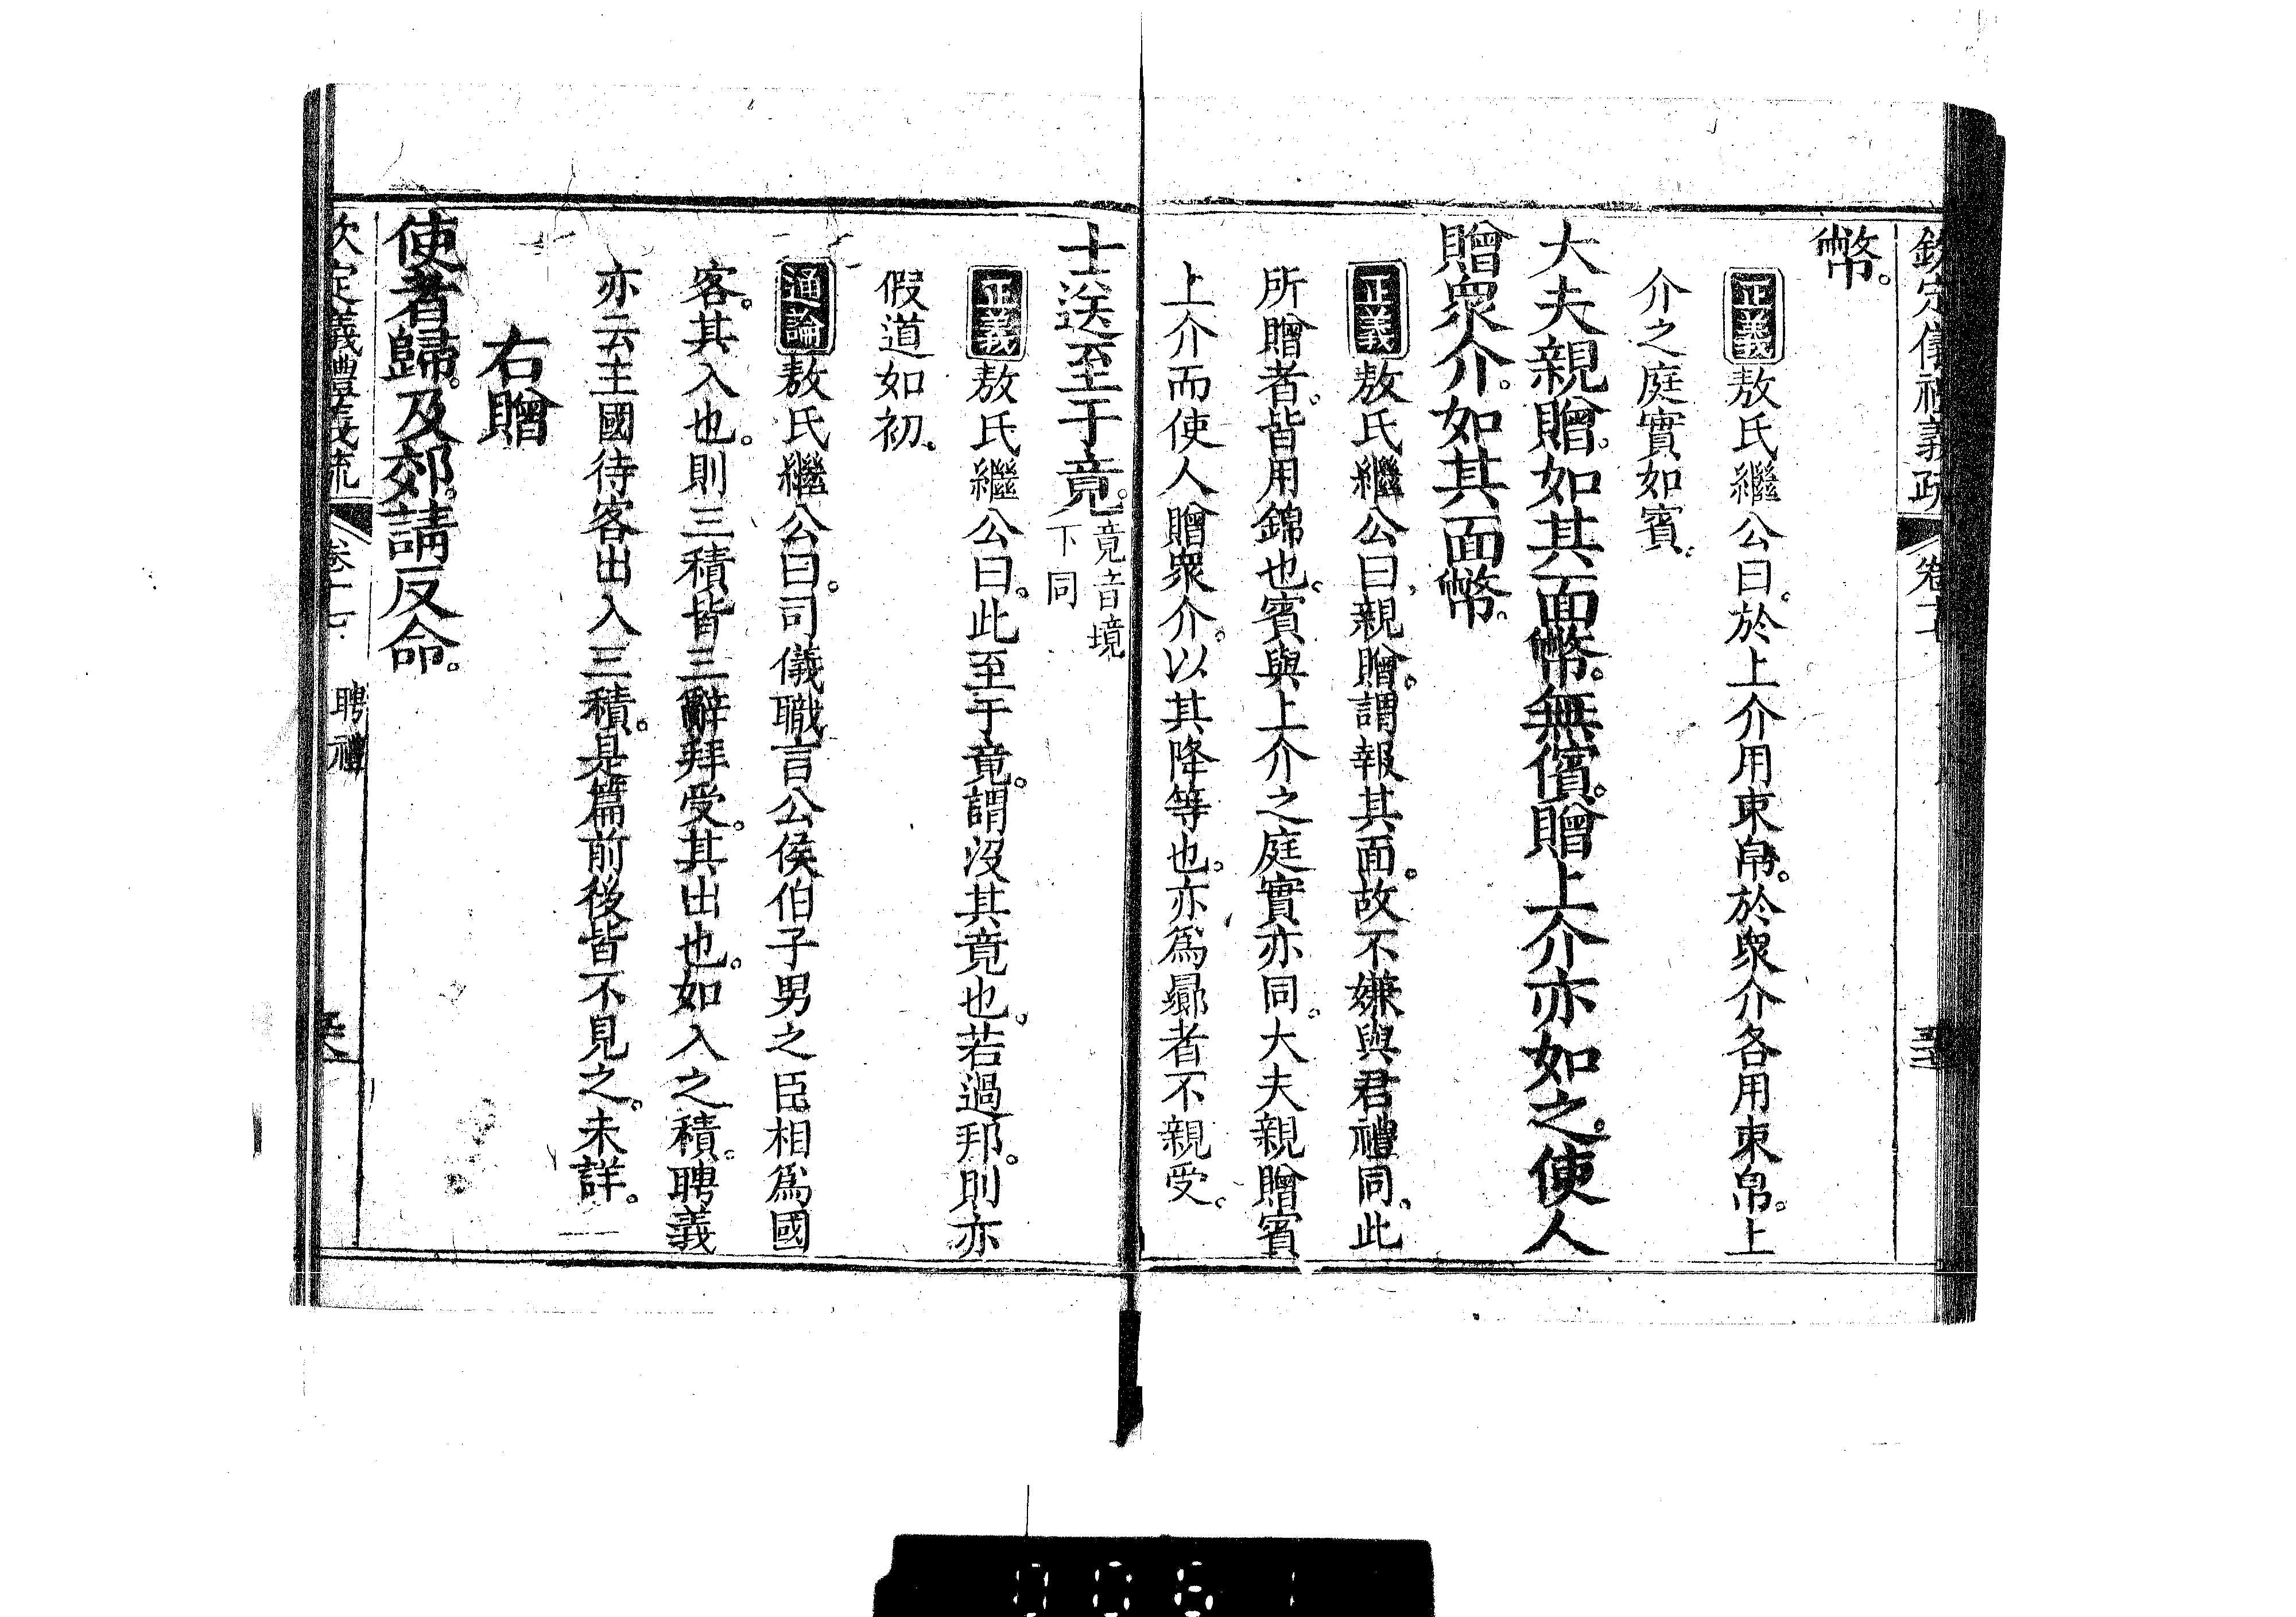 欽定儀禮義疏 卷十七
幣。
正義敖氏繼公曰。於上介用束帛。於衆介各用束帛。上
介之庭實如賓。
大夫親贈。如其面幣。無儐。贈上介亦如之。使人
贈衆介。如其面幣。
正義敖氏繼公曰。親贈。謂報其面。故不嫌與君禮同。此
所贈者。皆用錦也。賓與上介之庭實亦同。大夫親贈賓
上介而使人贈衆介。以其降等也。亦爲曏者不親受。
士送至于竟。竟音境下同
正義敖氏繼公曰。此至于竟。謂沒其竟也。若過邦。則亦
假道如初。
通論敖氏繼公曰。司儀職言公侯伯子男之臣相爲國
客。其入也。則三積皆三辭拜受。其出也。如入之積。聘義
亦云主國待客出入三積。是篇前後皆不見之。未詳。
右贈
使者歸。及郊。請反命。
欽定儀禮義疏 卷十七 聘禮